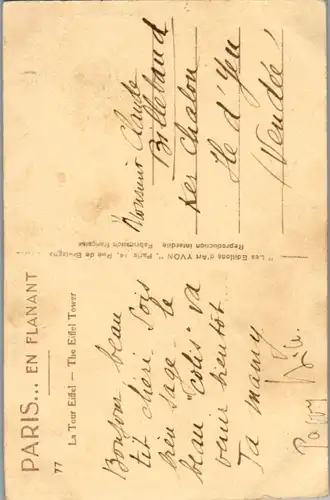 PARIS... EN FLANANT
77
La Tour Eiffel — The Eiffel Tower
Bonjour beau
tit chéri Sois
bien sage - le
beau "Colis" va
venir bientôt
Ta mamy
Papy
"Les Editions d'Art YVON", Paris 14, Rue de Bretagne
Fabrication Française
Reproduction Interdite
Monsieur Claude
Billebaud
Ker Chalon
Ile d'Yeu
(Vendée)